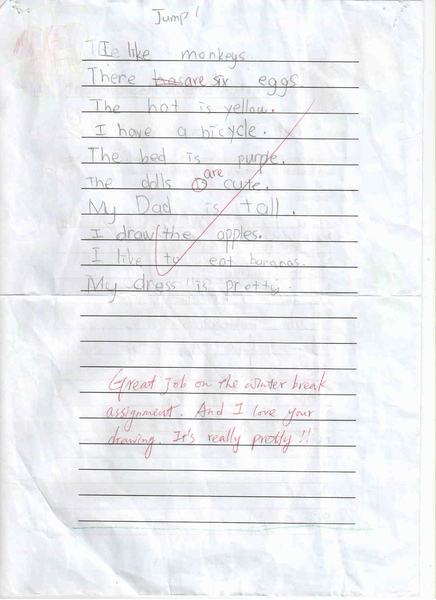 Jump!
I like monkeys
There are six eggs
The hat is yellow.
I have a bicycle.
The bed is purple.
The dolls are cute.
My Dad is tall.
I draw the apples.
I like to eat bananas.
My dress is pretty.
Great job on the winter break
assignment. And I love your
drawing. It's really pretty!!